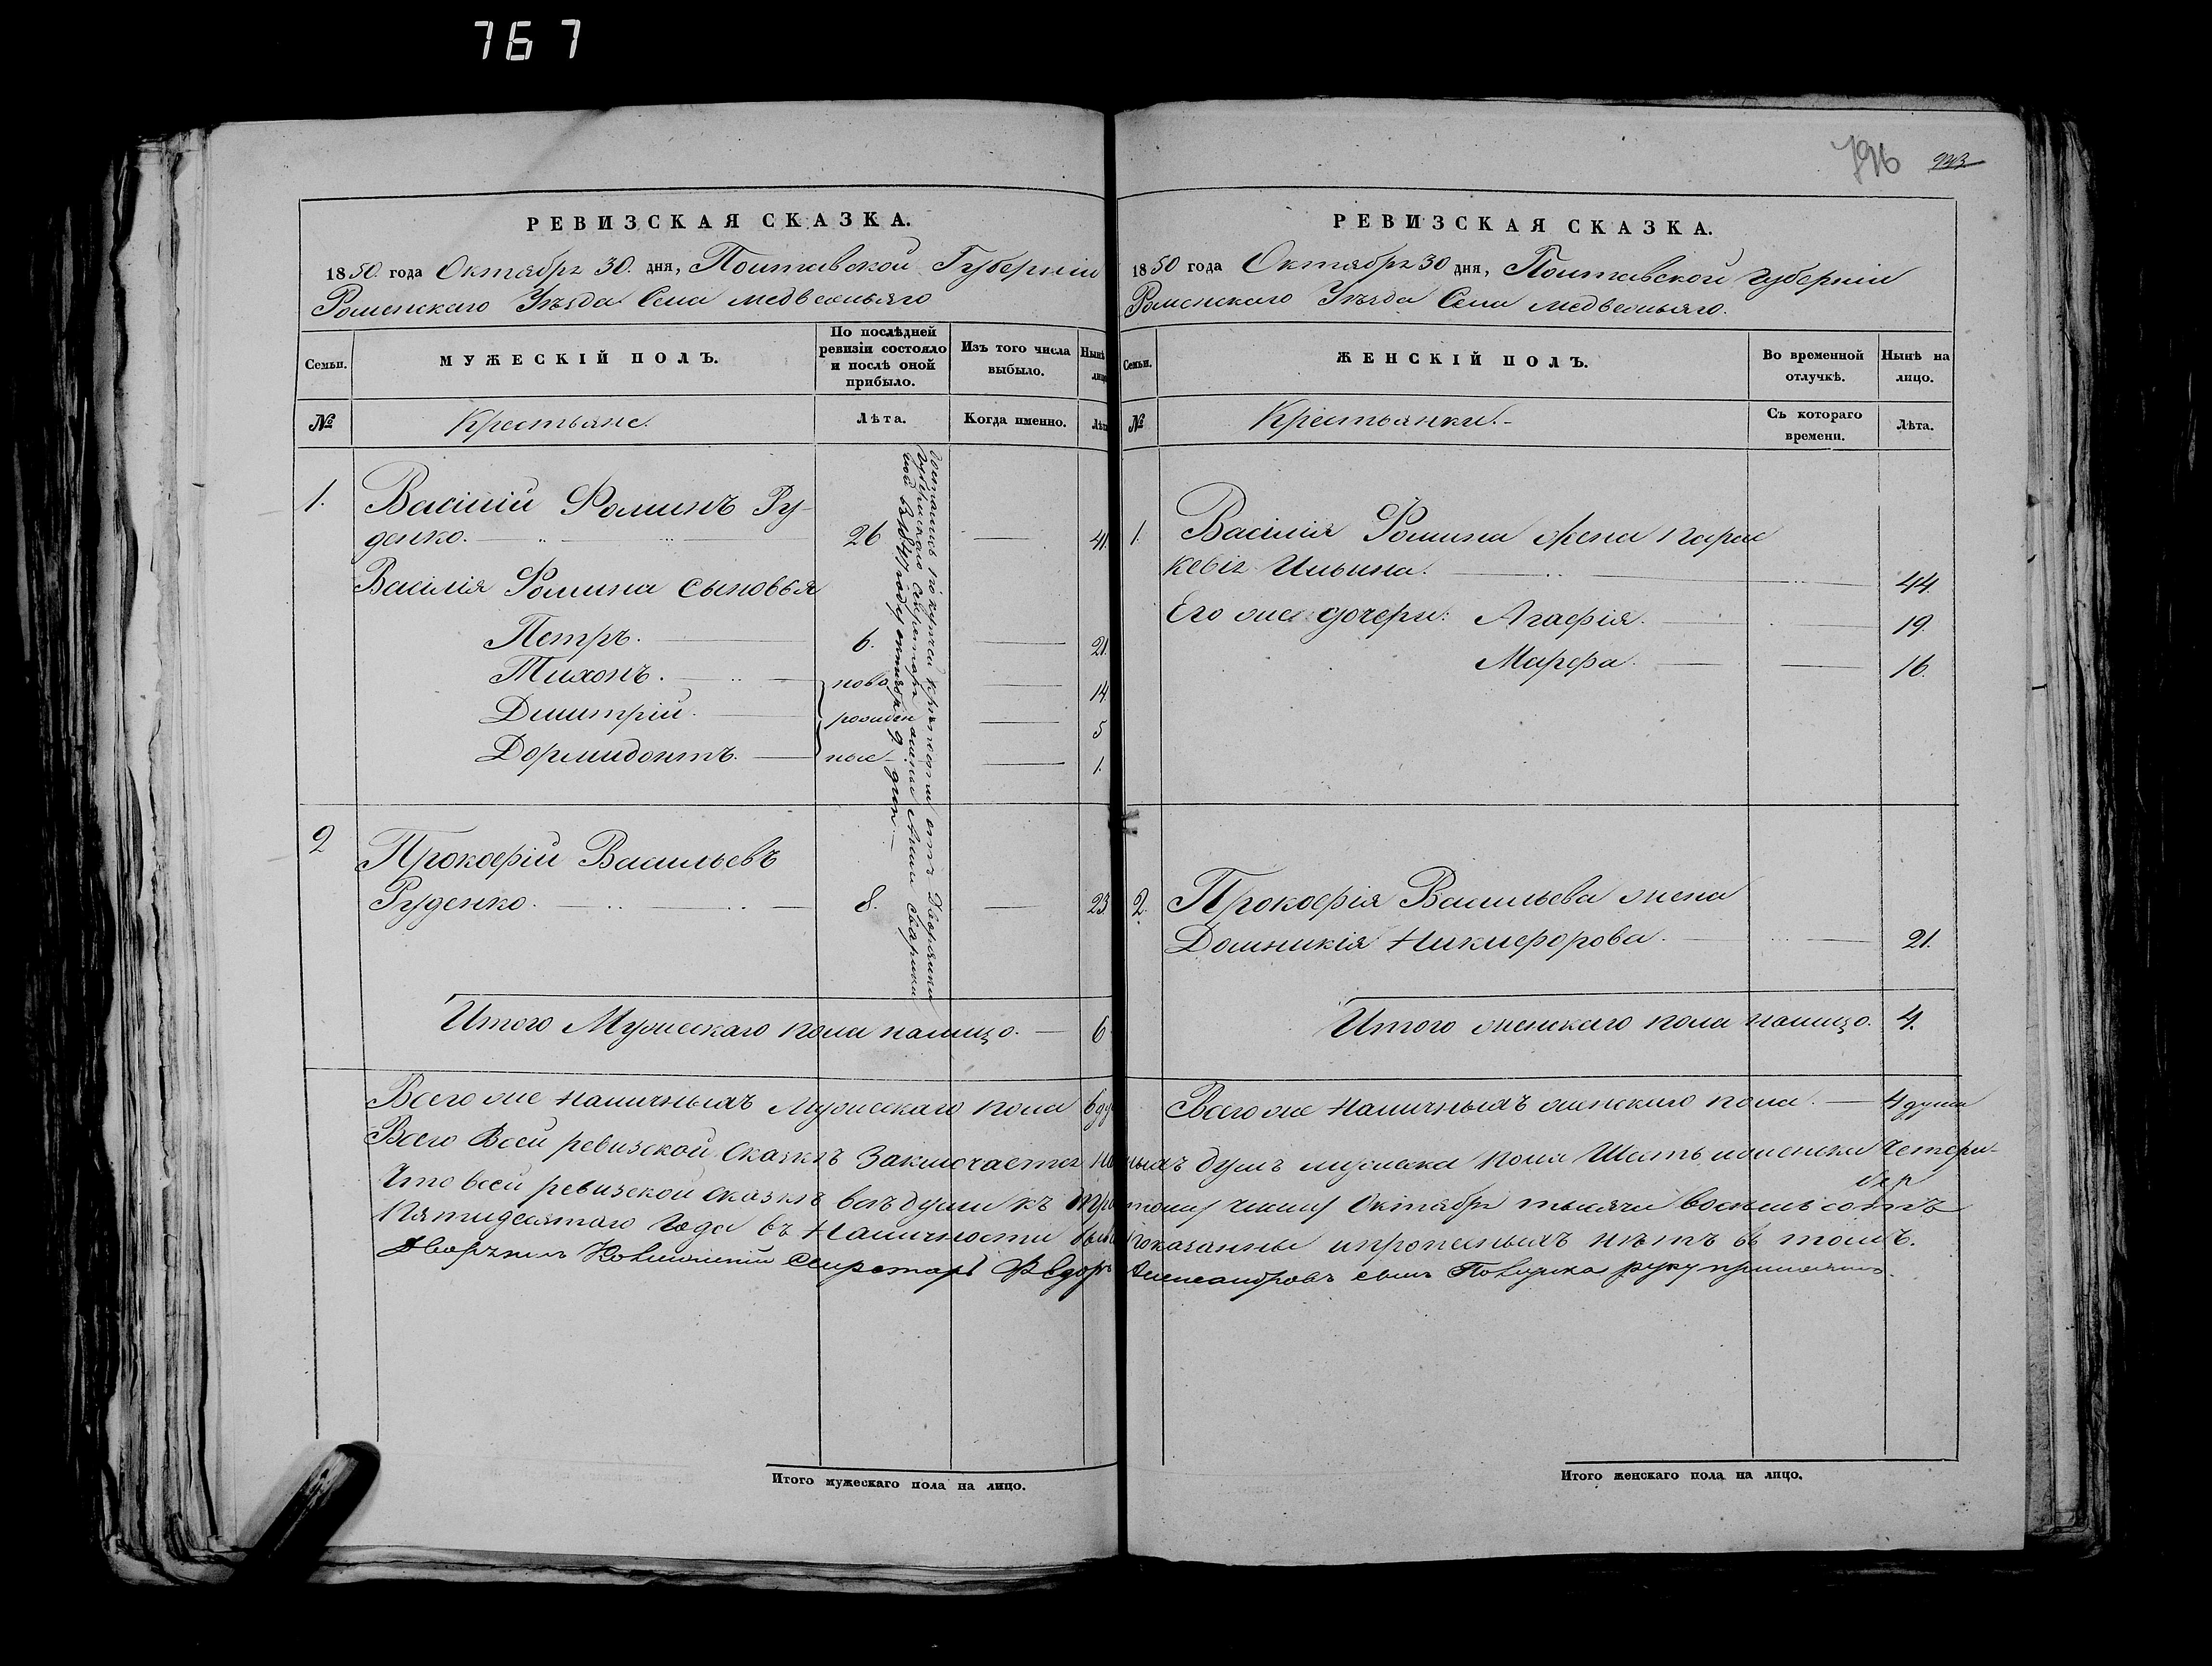 767
796 933
РЕВИЗСКАЯ СКАЗКА.
1850. года Октября 30. дня, Полтавской Губерніи
Роменскаго Уезда Села Медвежьяго
Семьи.
МУЖЕСКІЙ ПОЛЪ.
По послѣдней ревизіи состояло и послѣ оной прибыло.
Изъ того числа выбыло.
Нынѣ лицо
№
Крестьяне.
Лѣта.
Когда именно.
Лѣта
1. Василій Фоминъ Ру-
денко. 26 41.
Василія Фомина сыновья
Петръ. 6. 21.
Тихонъ. ново 14
Дмитрій. рожден 5
Дормидонтъ. ные 1.
Достались по купчей крепости отъ Дворянина
Губернскаго Секретаря
года 9 дня.
2 Прокофій Васильевъ
Руденко. 8. 23
Итого Мужескаго пола налицо. 6
Всего же наличныхъ Мужескаго пола 6 ду
РЕВИЗСКАЯ СКАЗКА.
1850 года Октября 30 дня, Полтавской Губерніи
Роменскаго Уезда Села Медвежьяго.
Семьи.
ЖЕНСКІЙ ПОЛЪ.
Во временной отлучкѣ.
Нынѣ на лицо.
№
Крестьянки.
Съ котораго времени.
Лѣта.
1. Василія Фомина жена Парас
кевія Ильина. 44.
Его же дочери: Агафія. 19.
Марфа. 16.
2. Прокофія Васильева жена
Домникія Никифорова. 21.
Итого женскаго пола налицо. 4.
Всего же наличныхъ женскаго пола. 4 души
Всего Всей ревизской Сказкѣ Заключается налич ныхъ душъ мужеска пола Шесть иженска Четыри
Что всей ревизской сказкѣ всѣ души къ Три тому числу Октября тысяча восемьсотъ
Пятидесятаго Года въ Наличности были показанны ипрописныхъ нѣтъ въ томъ.
Дворянинъ Секретарь Федоръ Александровъ сынъ руку приложилъ.
Итого мужескаго пола на лицо.
Итого женскаго пола на лицо.